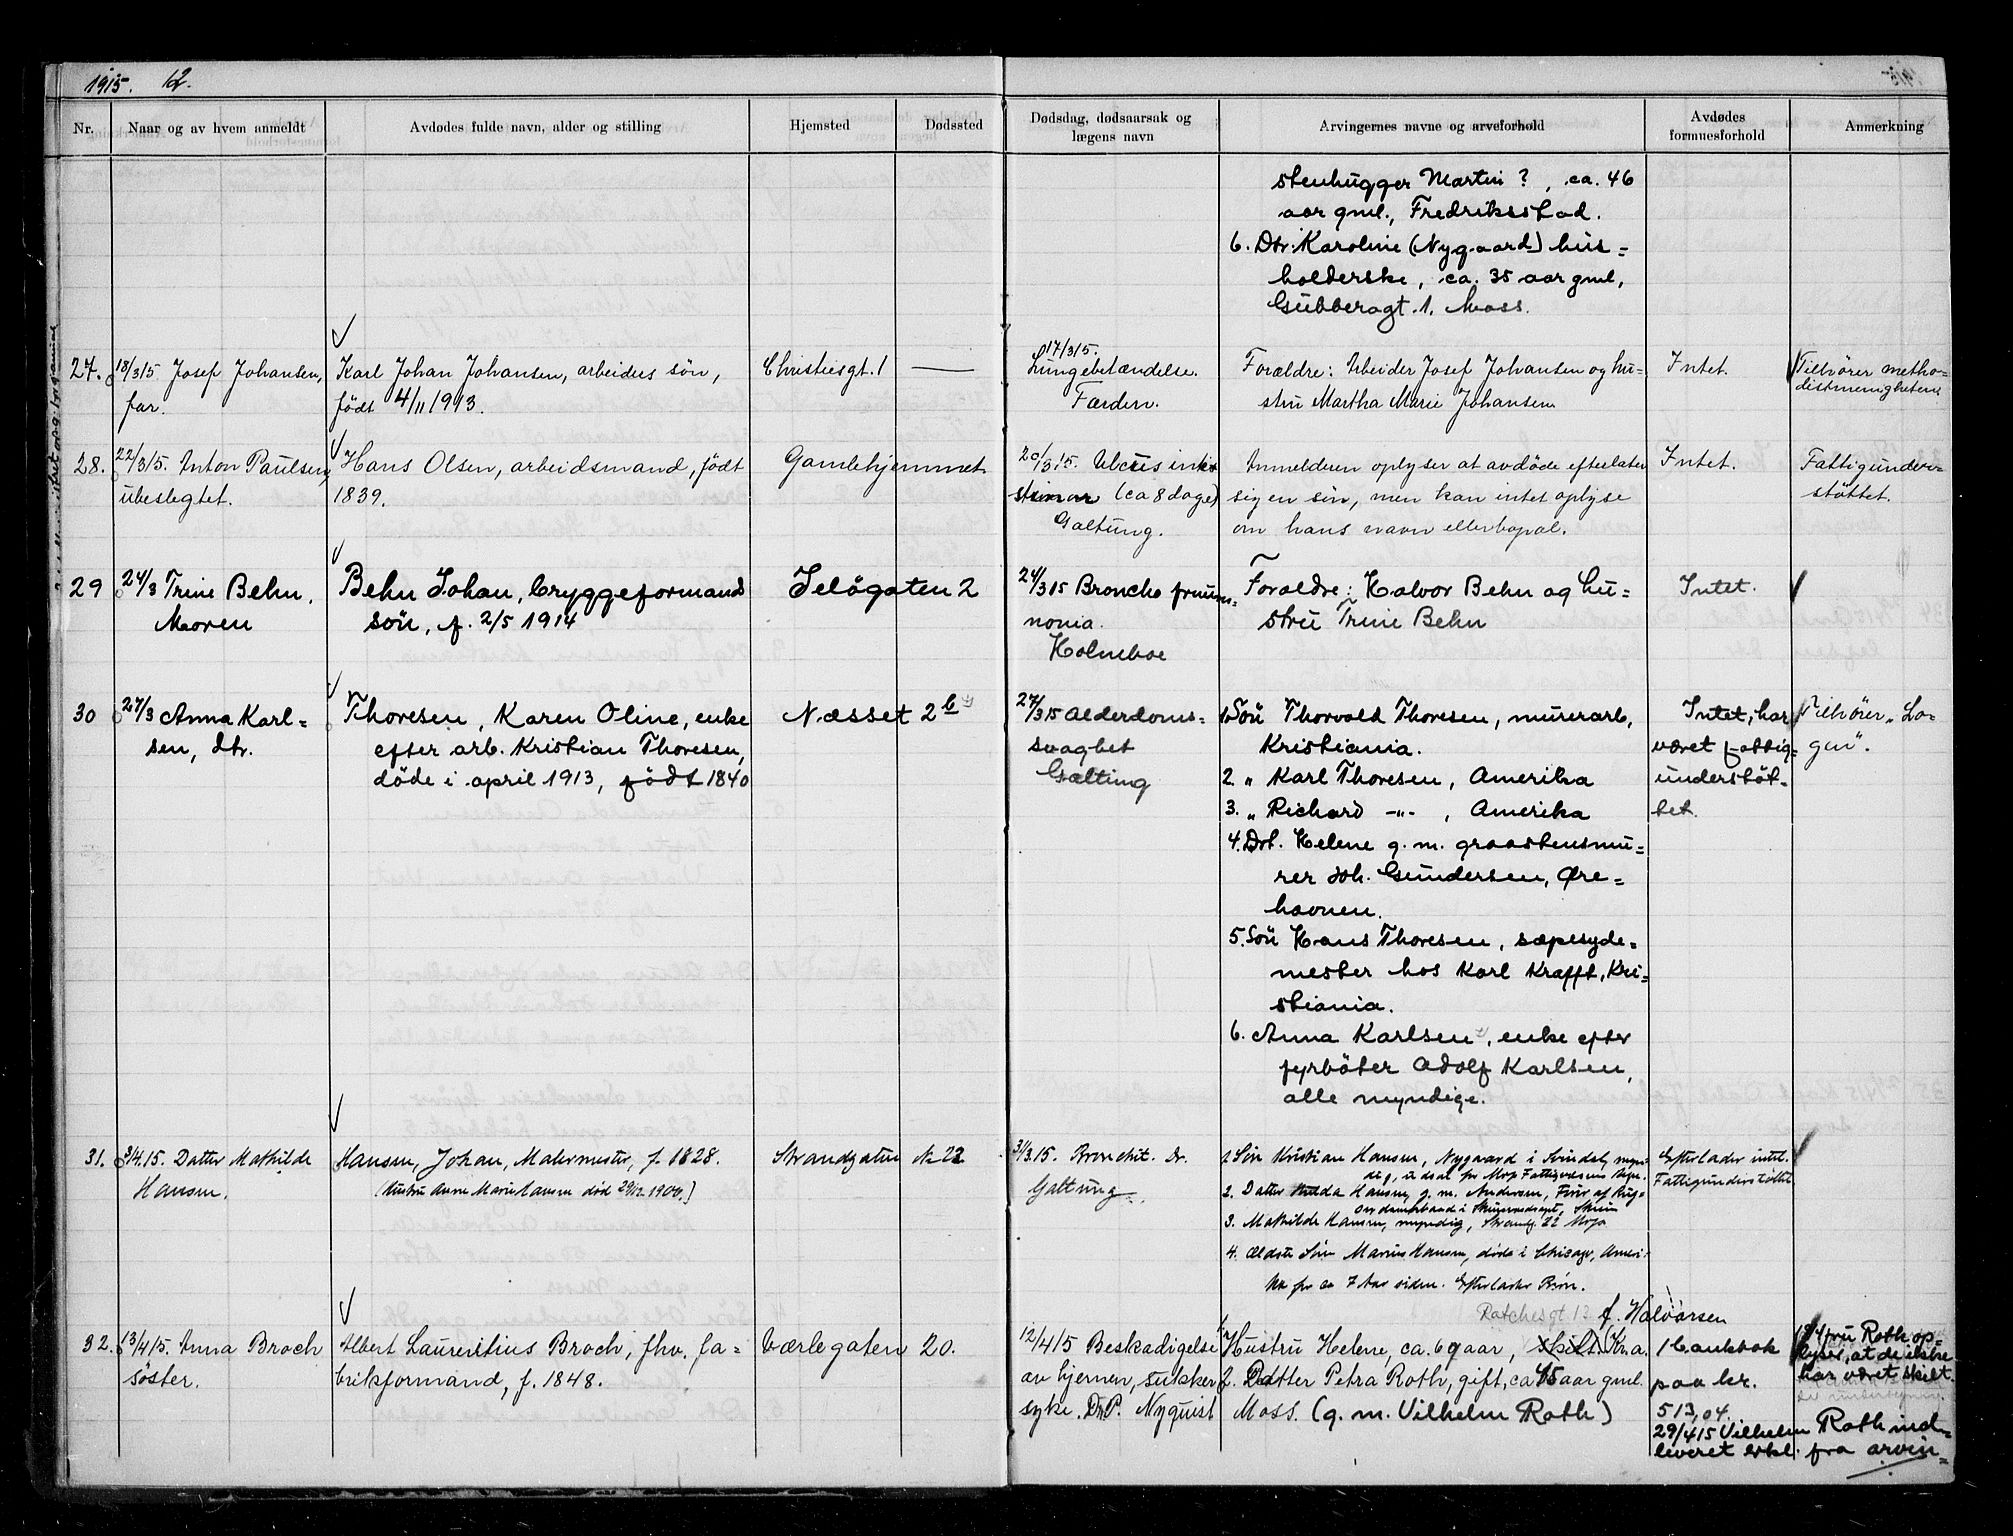 1915. 12.
Nr. Naar og av hvem anmeldt Avdødes fulde navn, alder og stilling Hjemsted Dødssted Dødsdag, dødsaarsak og lægens navn Arvingernes navne og arveforhold Avdødes formuesforhold Anmerkning
stenhugger Martin ?, ca. 46
aar gml., Fredriksstad.
6. Dtr. Karoline (Nygaard) hus-
holderske, ca. 35 aar gml,
Gubberogt. 1. Moss.
27. 18/3 15 Josef Johansen,
far.
Karl Johan Johansen, arbeiders søn,
født 4/11 1913.
Christiesgt. 1
17/3 15.
Lungebetændelse.
Færden.
Forældre: Arbeider Josef Johansen og hu-
stru Martha Marie Johansen
Intet.
Tilhører metho-
distmenigheten
28. 22/3 15. Anton Paulsen,
ubeslegtet.
Hans Olsen, arbeidsmand, født
1839.
Gamlehjemmet
20/3 15. Ulcus
(ca 8 dage)
Galtung.
Anmelderen oplyser at avdøde efterlater
sig en søn, men kan intet oplyse
om hans navn eller bopæl.
Intet.
Fattigunder-
støttet.
29 24/3 Trine Behn,
Moren
Behn Johan, bryggeformands
søn, f. 2/5 1914
Jeløgaten 2
24/3 15 Broncho pneum-
nonia.
Holmboe
Forældre: Halvor Behn og hu-
stru Trine Behn
Intet.
30 27/3 Anna Karl-
sen, dtr.
Thoresen, Karen Oline, enke
efter arb. Kristian Thoresen,
døde i april 1913, født 1840
Næsset 2b
27/3 15 Alderdoms-
svaghet
Galtung
1. Søn Thorvald Thoresen, murerarb,
Kristiania.
2. " Karl Thoresen, Amerika
3. " Richard -"- , Amerika
4. Dtr. Helene g. m. graastensmu-
rer Joh. Gundersen, Øre-
havnen.
5. Søn Hans Thoresen, sæpesyde-
mester hos Karl Krafft, Kri-
stiania.
6. Anna Karlsen, enke efter
fyrbøter Adolf Karlsen,
alle myndige.
Intet, har
været fattig-
understøt-
tet.
Tilhører "Lo-
gen".
31. 3/4.15. Datter Mathilde
Hansen.
Hansen, Johan, Malermester, f. 1828.
(Hustru Anne Marie Hansen død 29/12 1900.)
Strandgaten No 22
31/3.15. Bronchit. Dr.
Galtung
1. Søn Kristian Hansen, Nygaard i
2. Datter Hulda Hansen, g. m. Andersen,
3. Mathilde Hansen, myndig, Strandg. 22 Moss
4. Ældste Søn Marius Hansen, døde i Chicago, Ameri-
ka for ca 7 Aar siden. Efterlader Børn.
Efterlader intet.
Fattigunderstøttet
32. 13/4 15. Anna Broch
søster.
Albert Laurentius Broch, fhv. fa-
brikformand, f. 1848.
Værlegaten 20.
12/4 15 Beskadigelse
av hjernen, sukker
syke. Dr. P. Nyquist
f. Halvorsen
1. Hustru Helene, ca. 69 aar, skilt. Kr.a.
2. Datter Petra Roth, gift, ca 45 aar gml.
Moss. (g. m. Vilhelm Roth)
1 bankbok
paa kr.
513,04.
29/4 15 Vilhelm Roth ind-
leveret erkl. fra arvin-
fru Roth op-
lyser, at de ikke
har været skilt.